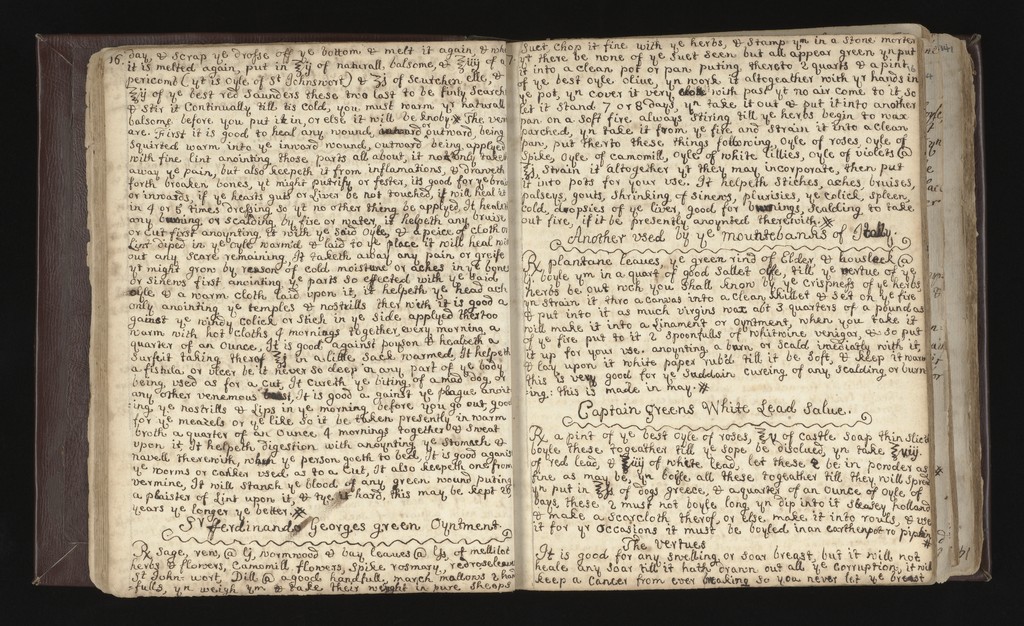 16.
day, & scrap ye drosse off ye bottom & melt it again, & when
it is melted again, put in ℥ij of naturall, balsome, & ℥iiij of
pericont (yt is oyle of St Johnswort) & ℥j of scutchen elle, &
℥ij of ye best red Saunders these two last to be finly Searched
& Stir it Continually till tis cold, you must warm yr naturall
balsome before you put it in, or else it will be knoby The ver
are. First it is good to heal any wound, outward, being
squirted warm into ye inward wound, outward being applyed
with fine lint anointing those parts all about, it not only taketh
away ye pain, but also keepeth it from inflamations, & draweth
forth brooken bones, yt might putrify or fester, its good for ye brains
or inwards, if ye hearts guts or liver be not touched, it will heal it
in 4 or 5 times dresing so yt no other thing be applyed. It healeth
any burning or scalding by fire or water, it helpeth any bruise
or cut first anoynting, it with ye said oyle, & a peice of cloth or
Lint diped in ye oyle warm'd & laid to ye place it will heal with
out any scare remaining, It taketh away any pain or greife
yt might grow by reason of cold moisture or aches in ye bones
or sinews first anointing ye parts so effected with ye said
oyle & a warm cloth laid upon it, it helpeth ye head ach
only anointing ye temples & nostrills therwith it is good a
gainst ye windy Colick or Stich in ye Side applyed thertoo
warm with hot Cloths 4 mornings together every morning a
quarter of an Ounce, It is good against poyson & healeth a
Surfeit taking therof ℥j in a little Sack warmed, It helpeth
a fistula or Ulcer be it never so deep in any part of ye body
being, used as for a cut, It cureth ye biting of a mad dog, or
any other venemous beast, It is good a gainst ye plague anoint
:ing ye nostrills & Lips in ye morning before you go out, good
for ye meazels or ye like so it be taken presently in warm
broth a quarter of an Ounce 4 mornings together & Sweat
upon it It helpeth digestion with anoynting ye Stomach &
navell therewith, when ye person goeth to bed, It is good against
ye worms or canker used, as to a Cut, It also keepeth one from
vermine, It will stanch ye blood of any green wound puting
a plaister of Lint upon it, & tye it hard, this may be kept 20
years ye longer ye better.
Sr Ferdinando Georges green Oyntment
℞ Sage, rew, @ ℔j, wormwood & bay leaves @ ℔s, of mellilot
herbs & flowers, Camomill flowers, Spike rosmary, redroseleaves
St John: wort, Dill @ a good handfull, march mallows 2 hand
:fulls, yn weigh ym & take their weight in pure Sheeps
suet, chop it fine with ye herbs, & stamp ym in a stone morter
yt there be none of ye suet seen but all appear green yn put
it into a clean pot or pan, puting thereto 2 quarts & a pint
of ye best oyle olive, yn work it altogeather with yr hands in
ye pot, yn cover it very close with past yt no air come to it, so
let it stand 7 or 8 days, yn take it out & put it into another
pan on a soft fire always stiring till ye herbs begin to wax
parched, yn take it from ye fire and strain it into a clean
pan, put therto these things following, oyle of roses, oyle of
spike, oyle of camomill, oyle of white lillies, oyle of violets @
℥j, strain it altogether yt they may incorporate, then put
it into pots for your use. It helpeth stiches, aches, bruises,
palseys, gouts, Shrinking of Sinews, plurisies, ye colick, spleen,
cold, dropsies of ye liver, good for burnings, scalding to take
out fire, if it be presently anoynted therewith.
Another used by ye mountebanks of Italy.
℞ plantane leaves, ye green rind of Elder, & houseleek @
℔j boyle ym in a quart of good Sallet oyle, till ye vertue of ye
herbs be out wch you shall know by ye crispness of ye herbs,
yn strain it thro a canvas into a clean skillet & set on ye fire
& put into it as much virgins wax abt 3 quarters of a pound as
will make it into a Linament or Oyntment, when you take it
of ye fire put to it 2 spoonfulls of whitwine venigar, & so put
it up for your use. anoynting a burn or scald imediatly with it,
& lay upon it white paper rub'd till it be soft, & keep it warm
this is very good for ye suddain cureing of any scalding or burn
:ing: this is made in may.
Captain greens White Lead Salve.
℞ a pint of ye best oyle of roses, ℥v of castle soap thin sliced
boyle these together till ye sope be disolved, yn take ℥viij
of red lead, & ℥iiij of white lead, let these 2 be in powder as
fine as may be, yn boyle all these together till they will spread
yn put in ℥ij of dogs greece, & a quarter of an ounce of oyle of
bays, these 2 must not boyle long yn dip into it sleasey holland
& make a scarcloth therof, or else make it into rouls, & use
it for yr occasions it must be boyled in an earthen pot or pipkin
The vertues
It is good for any swelling, or soar breast, but it will not
heale any soar till it hath drawn out all ye corruption, it will
keep a Cancer from ever breaking so you never let ye breast